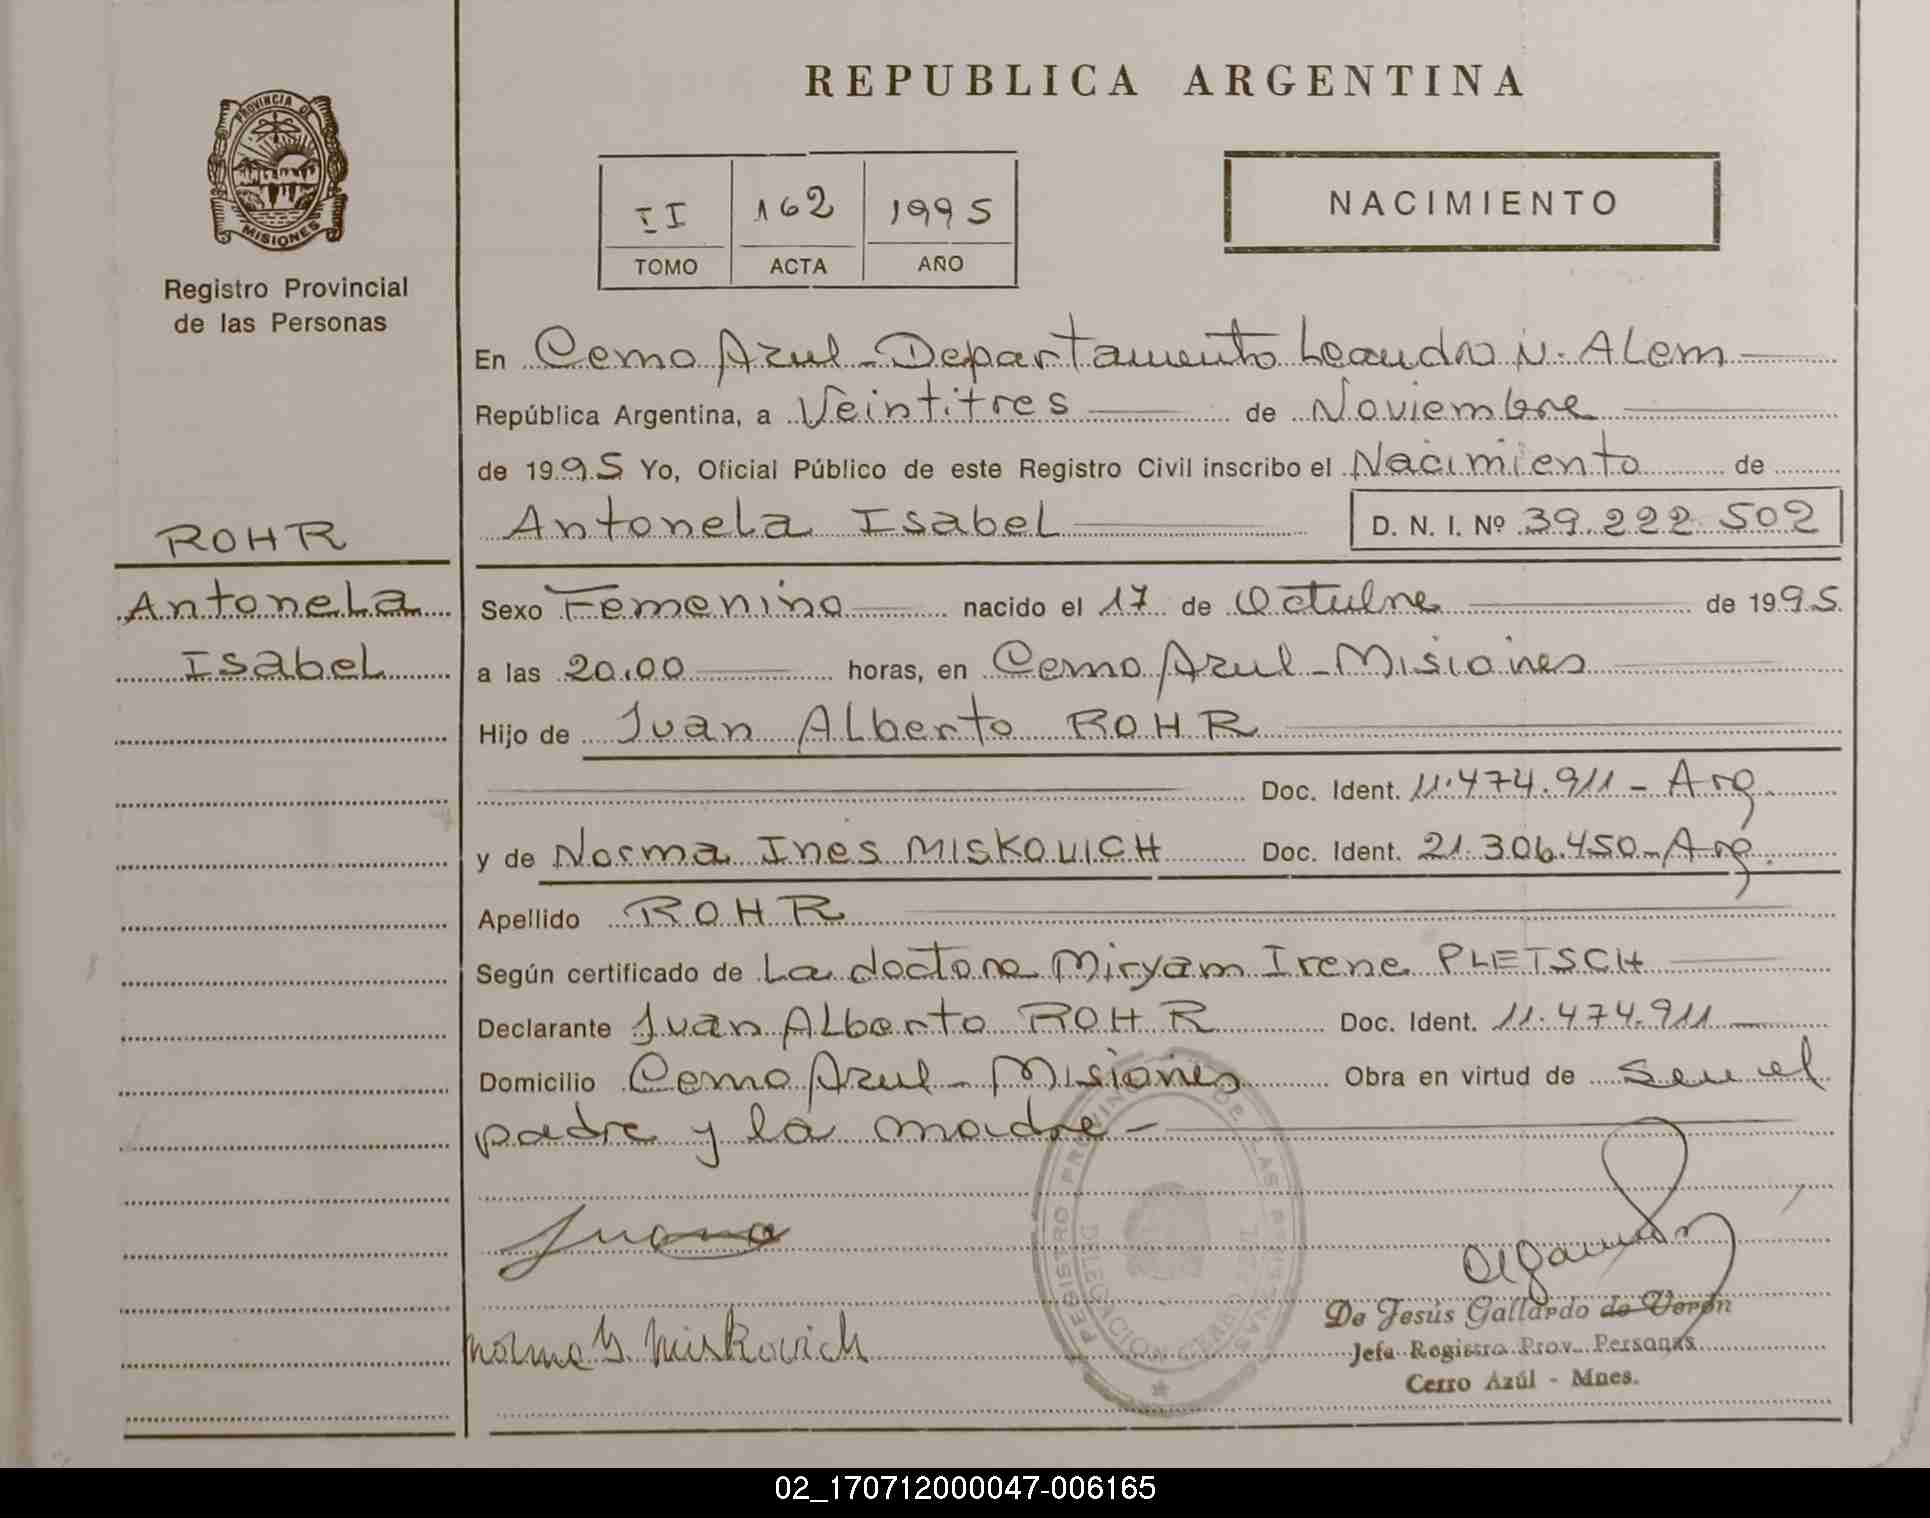 REPUBLICA ARGENTINA
PROVINCIA DE
MISIONES
Registro Provincial
de las Personas
II 162 1995
TOMO ACTA AÑO
NACIMIENTO
En Cerro Azul - Departamento Leandro N. ALem
República Argentina, a Veintitres de Noviembre
de 1995 Yo, Oficial Público de este Registro Civil inscribo el Nacimiento de
Antonela Isabel D. N. I. Nº 39.222.502
ROHR
Antonela
Isabel
Sexo Femenino nacido el 17 de Octubre de 1995
a las 20.00 horas, en Cerro Azul - Misiones
Hijo de Juan Alberto ROHR
Doc. Ident. 11.474.911 - Arg.
y de Norma Ines MISKOVICH Doc. Ident. 21.306.450 - Arg.
Apellido ROHR
Según certificado de La doctora Miryam Irene PLETSCH
Declarante Juan Alberto ROHR Doc. Ident. 11.474.911
Domicilio Cerro Azul - Misiones Obra en virtud de ser el
padre y la madre -
REGISTRO PROVINCIAL DE LAS PERSONAS
DELEGACION CERRO AZUL
Norma I. Miskovich
De Jesús Gallardo de Verón
Jefa Registro Prov. Personas
Cerro Azúl - Mnes.
02_170712000047-006165